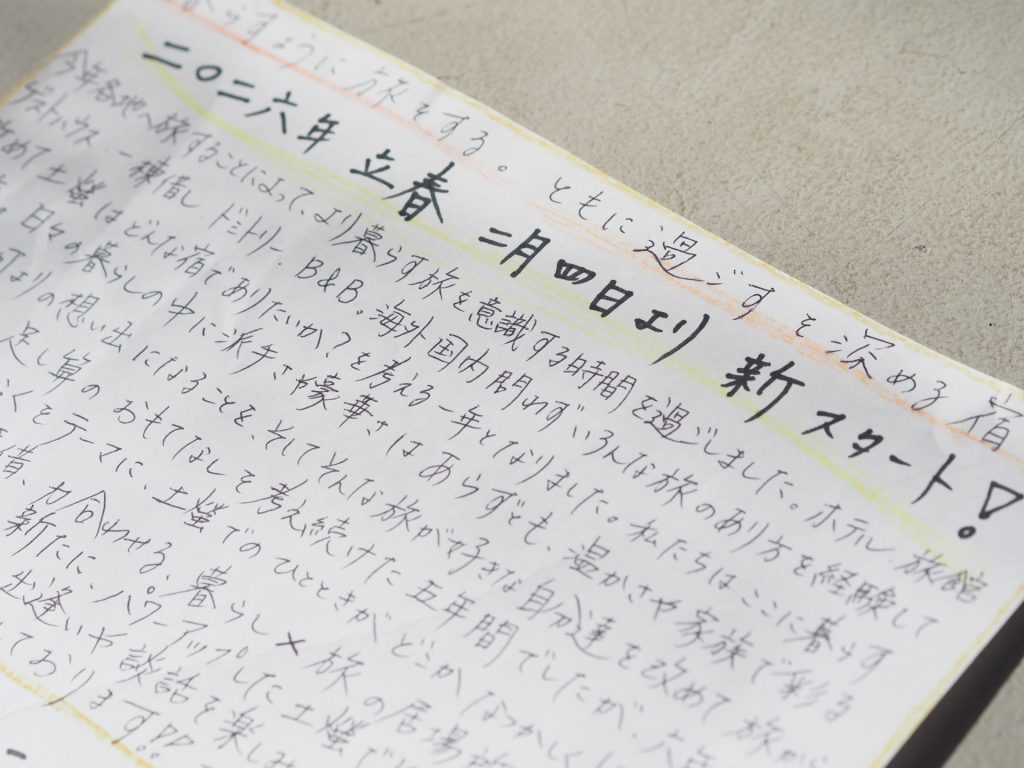 暮らすように旅をする。ともに過ごすを深める宿
二〇二六年 立春 二月四日より 新スタート!
今年各地へ旅することによって、より暮らす旅を意識する時間を過ごしました。ホテル、旅館
ゲストハウス、一棟借し、ドミトリー、B&B。海外国内問わずいろんな旅のあり方を経験して
改めて土螢はどんな宿でありたいか?を考える一年となりました。私たちはここに暮らす
日々の暮らしの中に派手さや豪華さはあらずとも、温かさや家族で彩る
何よりの想い出になることを、そしてそんな旅が好きな自分達を改めて旅が
足し算のおもてなしを考え続けた五年間でしたが、六年
くをテーマに、土螢でのひとときがどこかなつかしく
力合わせる、暮らし×旅の居場所
新たに、パワーアップした土螢で
出逢いや談話を楽しみ
しております!!